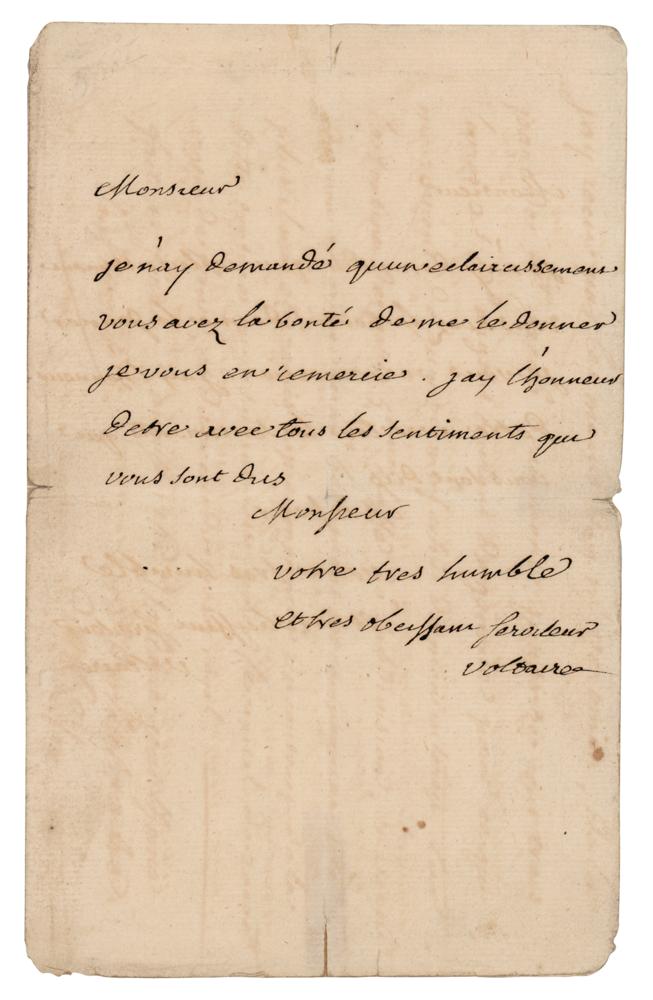 Monsieur
je n'ay demandé qu'un eclaircissement
vous avez la bonté de me le donner
je vous en remercie. jay l'honneur
detre avec tous les sentiments qui
vous sont dus
Monsieur
votre tres humble
et tres obeissant serviteur
voltaire